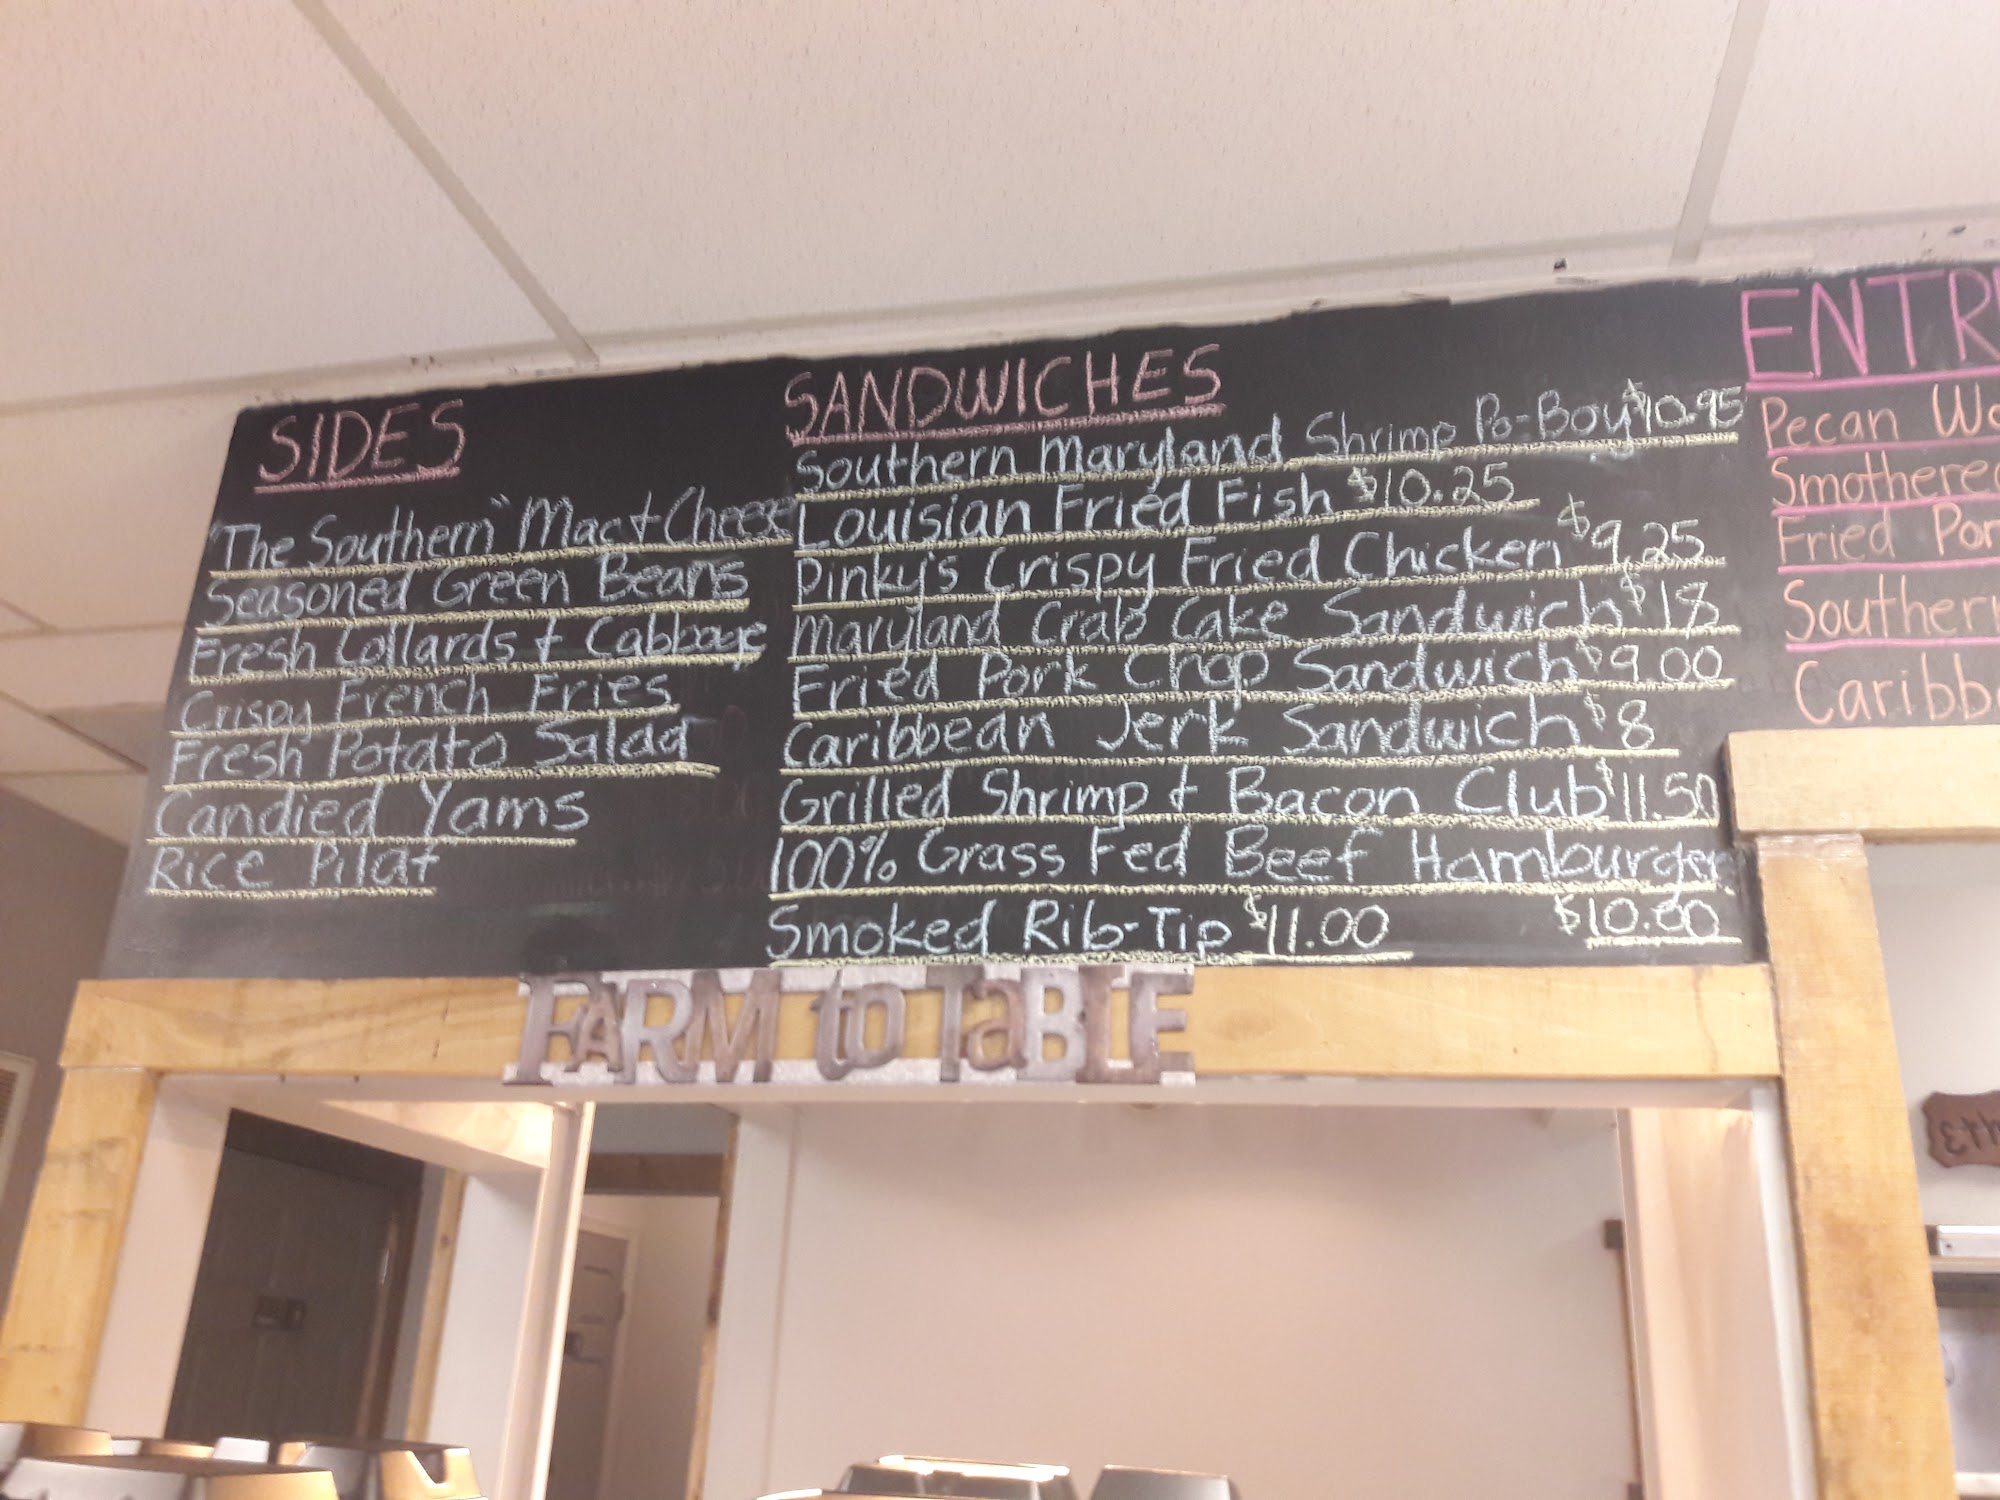 SIDES
"The Southern" Mac + Cheese
Seasoned Green Beans
Fresh Collards + Cabbage
Crispy French Fries
Fresh Potato Salad
Candied Yams
Rice Pilaf
SANDWICHES
Southern Maryland Shrimp Po-Boy $10.95
Louisian Fried Fish $10.25
Pinky's Crispy Fried Chicken $9.25
Maryland Crab Cake Sandwich $18
Fried Pork Chop Sandwich $9.00
Caribbean Jerk Sandwich $8
Grilled Shrimp + Bacon Club $11.50
100% Grass Fed Beef Hamburger
$10.00
Smoked Rib-Tip $11.00
ENTR
Pecan
Smothered
Fried Por
Southern
Caribb
FARM to TaBLE